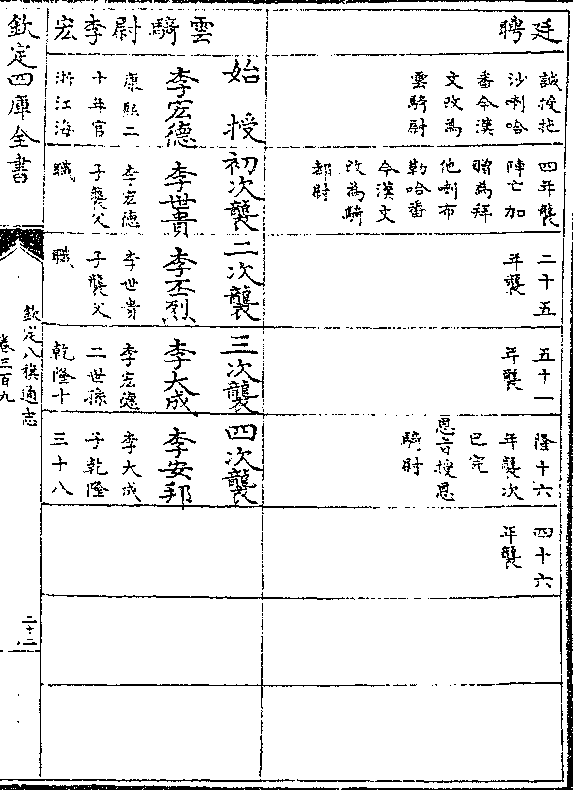 廷聘
誠授拖
沙喇哈
番今漢
文改為
雲騎尉
四年襲
陣亡加
贈為拜
他喇布
勒哈番
今漢文
改為騎
都尉
二十五
年襲
五十一
年襲
隆十六
年襲次
已完
恩旨授恩
騎尉
四十六
年襲
雲騎尉李宏
始授
李宏德
康熙二
十年官
浙江海
初次襲
李世貴
李宏德
子襲父
職
二次襲
李丕烈
李世貴
子襲父
職
三次襲
李大成
李宏德
二世孫
乾隆十
四次襲
李安邦
李大成
子乾隆
三十八
欽定四庫全書
欽定八旗通志
卷三百九
二十二